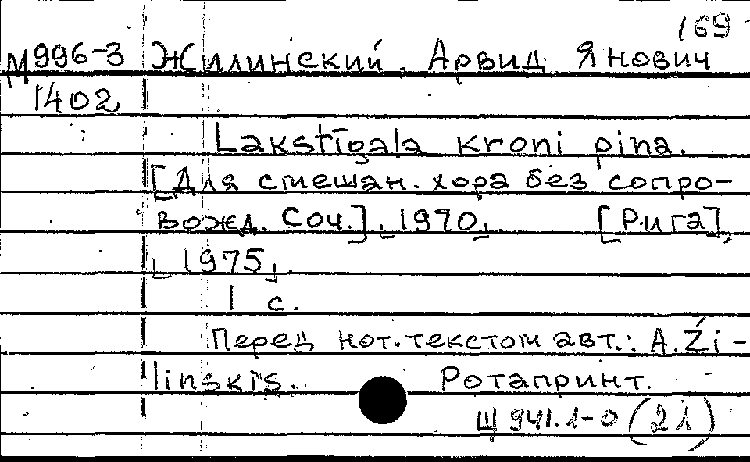 169
М996-3 Жилинский, Арвид Янович
1402
Lakstīgala kroni pina.
[Для смешан. хора без сопро-
вожд. Соч.], 1970. [Рига],
1975.
1 с.
Перед нот. текстом авт.: A. Źi-
linskis. Ротапринт.
Щ 941.1-0 (2λ)